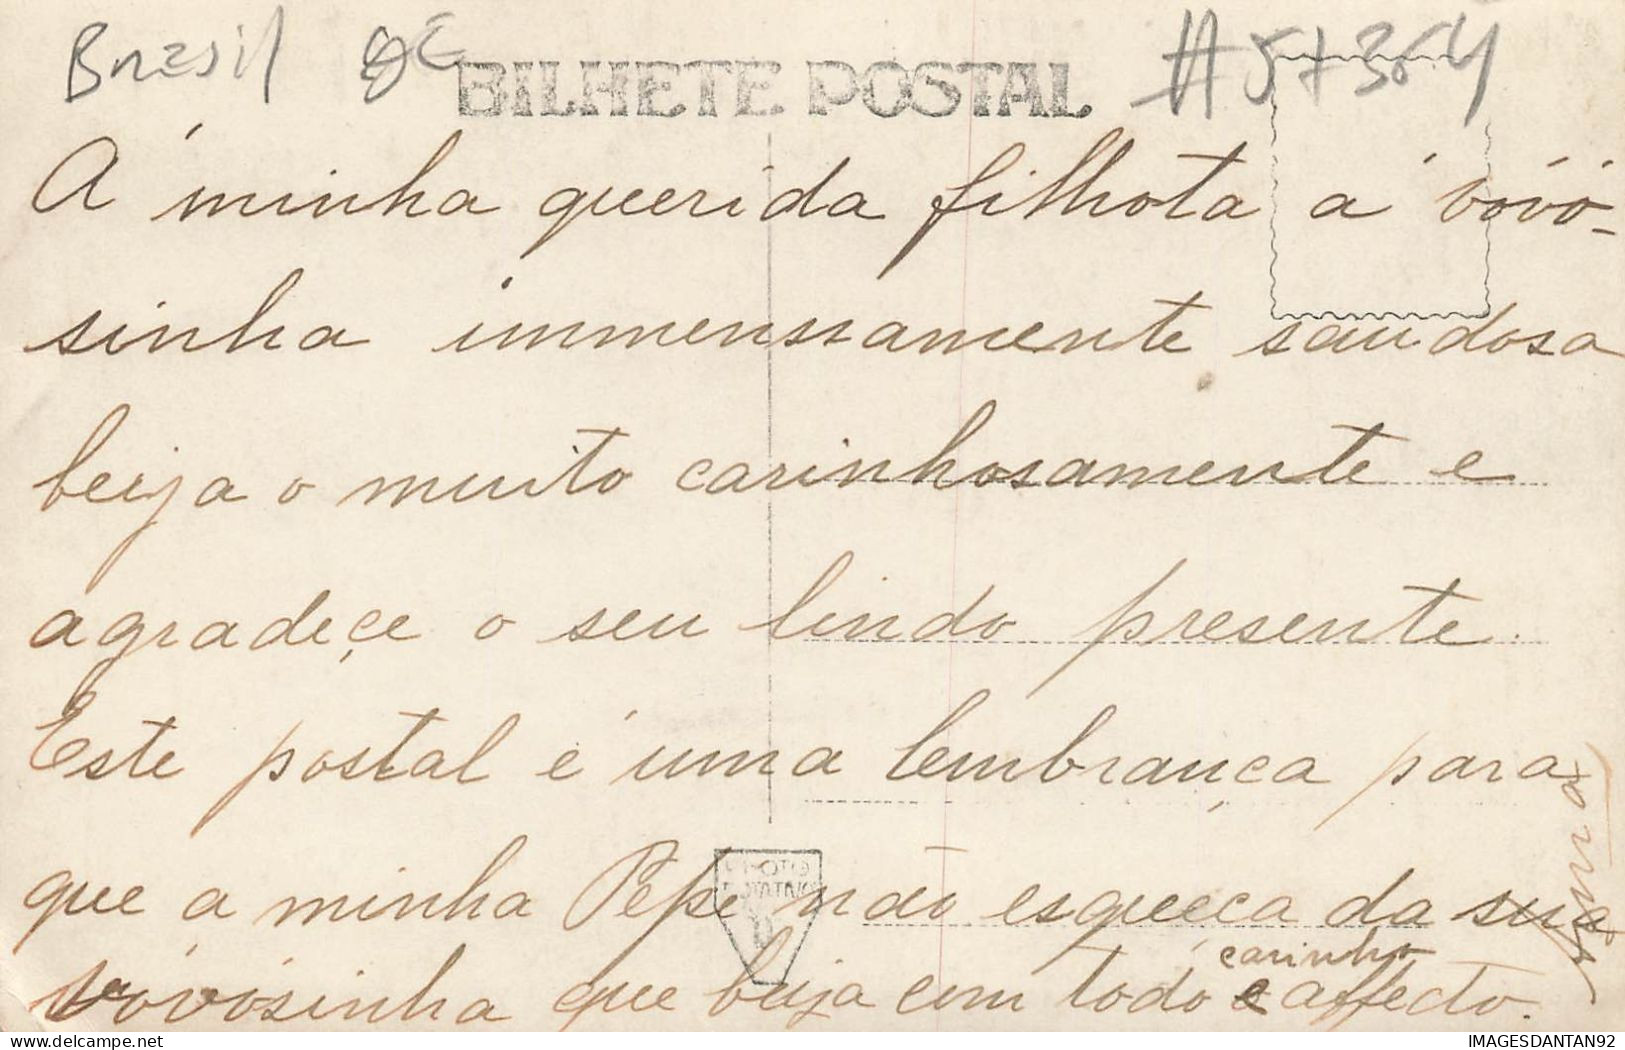 Bresil 8E # 57364
BILHETE POSTAL
A' minha querida filhota a vóvó-
sinha immensamente saudosa
beija o muito carinhosamente e
agradeçe o seu lindo presente.
Este postal é uma lembrança para
que a minha Pepe não esqueça da sua
carinho
vóvósinha que beija com todo e affecto.
PHOTO
IMAGESDANTAN92